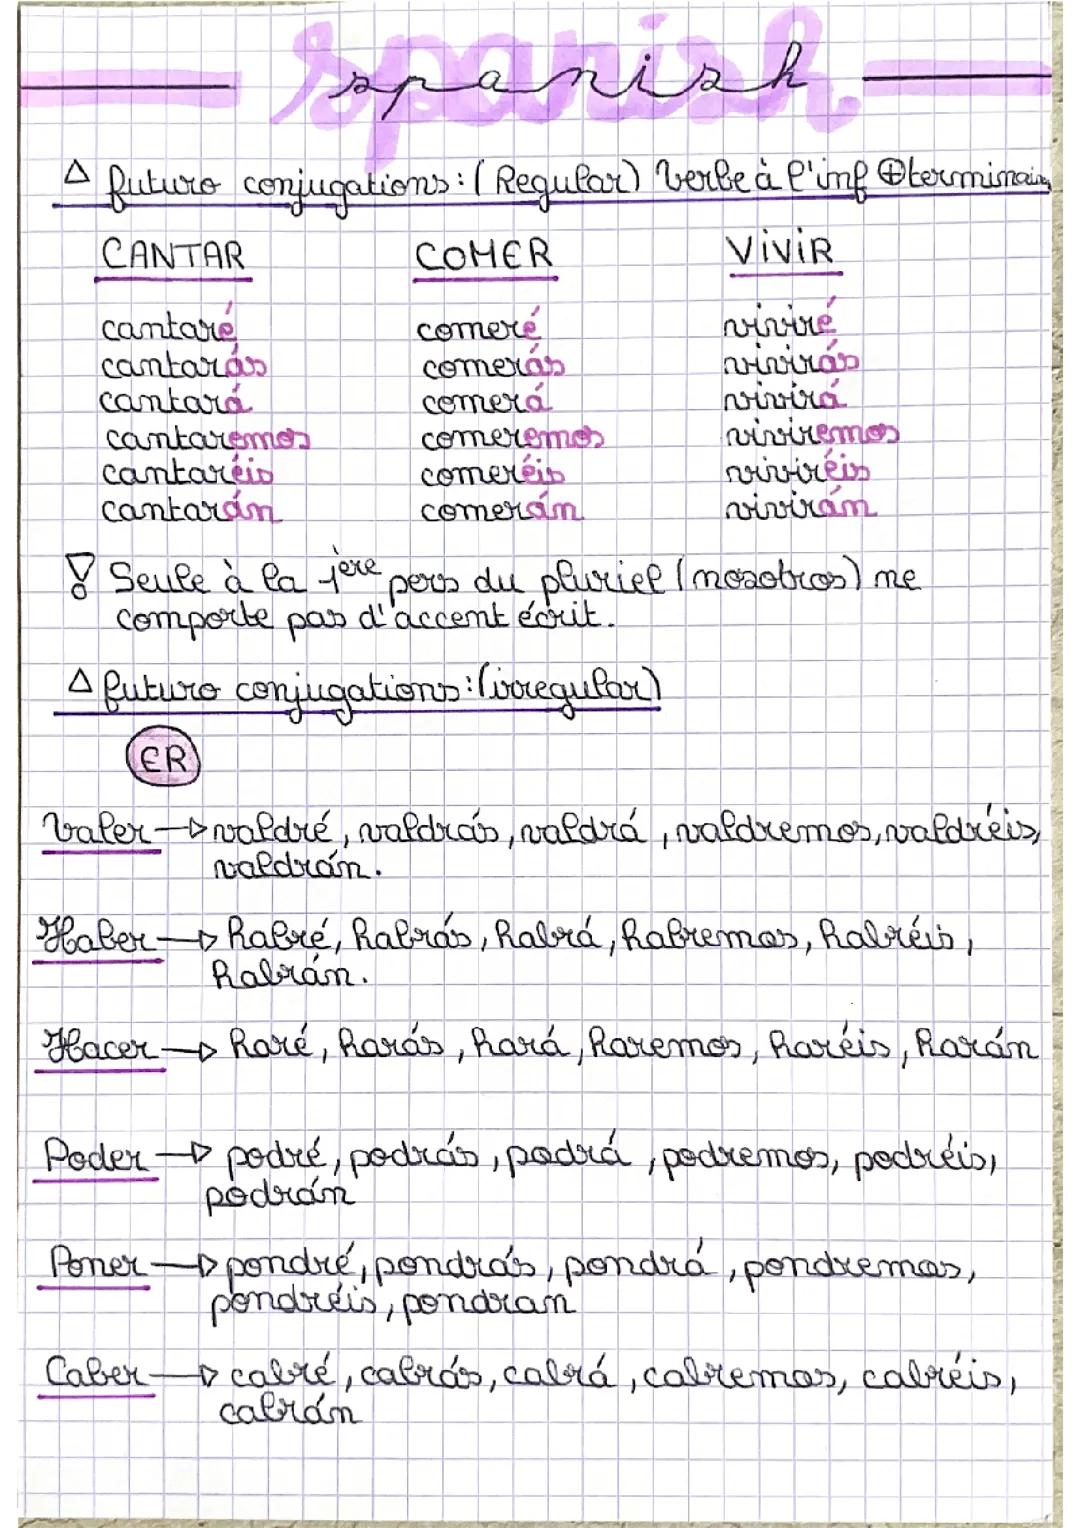 spanish
△ futuro conjugations: (Regular) Verbe à l'inf ⊕ terminais
CANTAR COMER ViViR
cantaré comeré viviré
cantarás comerás vivirás
cantará comerá vivirá
cantaremos comeremos viviremos
cantaréis comeréis viviréis
cantarán comerán vivirán
Seule à la 1ère pers du pluriel (nosotros) ne
comporte pas d'accent écrit.
△ futuro conjugations: (irregular)
ER
Valer → valdré, valdrás, valdrá, valdremos, valdréis,
valdrán.
Haber → habré, habrás, habrá, habremos, habréis,
habrán.
Hacer → haré, harás, hará, haremos, haréis, harán
Poder → podré, podrás, podrá, podremos, podréis,
podrán
Poner → pondré, pondrás, pondrá, pondremos,
pondréis, pondran
Caber → cabré, cabrás, cabrá, cabremos, cabréis,
cabrán